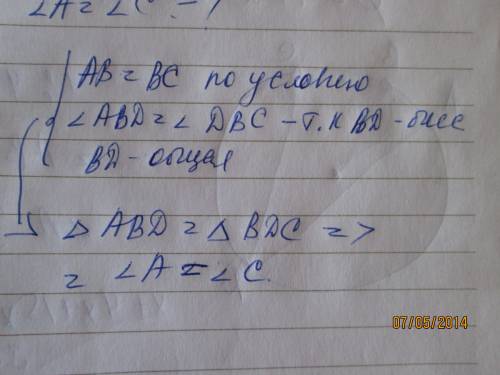 ∠A = ∠C - ?
AB = BC по условию
∠ABD = ∠DBC - т.к BD - бисс
BD - общая
△ ABD = △ BDC =>
= ∠A = ∠C.
07/05/2014